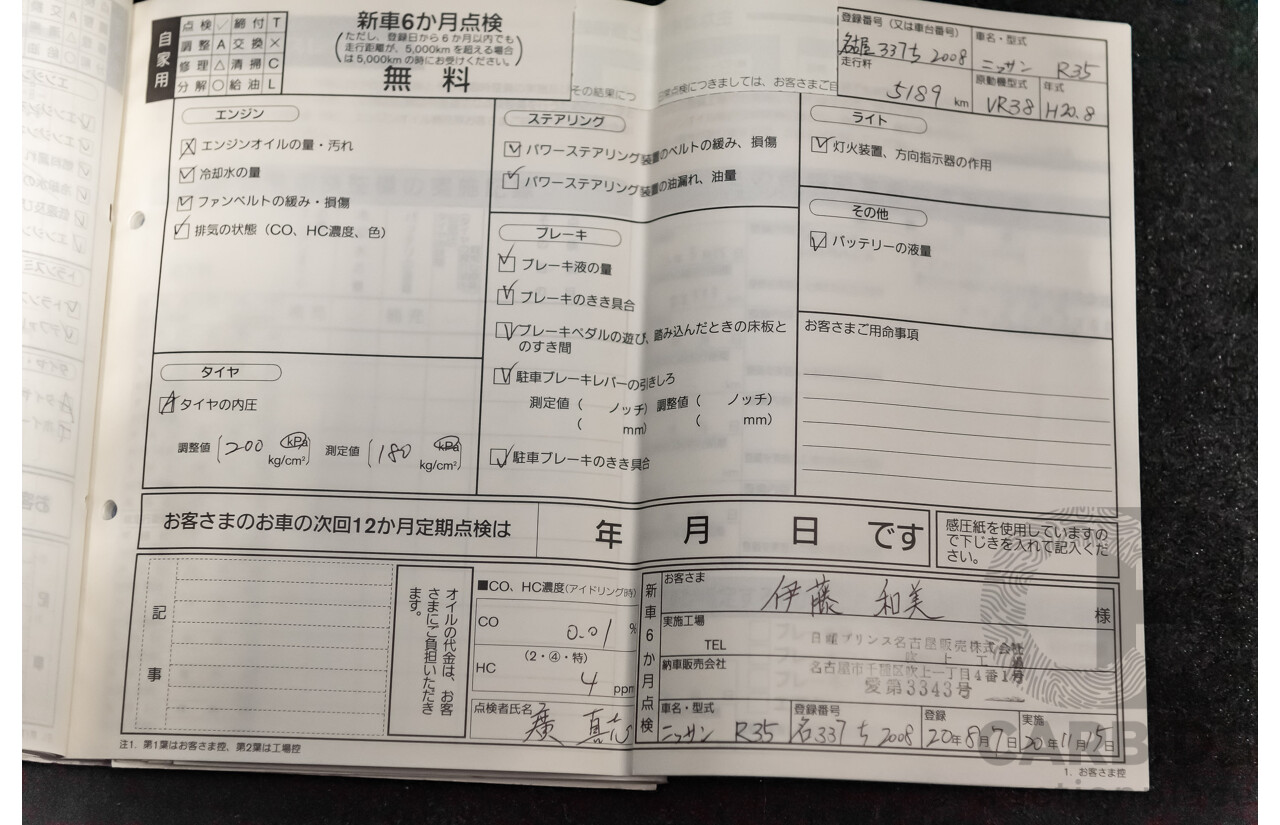 自家用
点検 ✓ 締付 T
調整 A 交換 ×
修理 △ 清掃 C
分解 ○ 給油 L
新車6か月点検
(ただし、登録日から6か月以内でも
走行距離が、5,000kmを超える場合
は5,000kmの時にお受けください。)
無料
その結果につ
常点検につきましては、お客さまご自
登録番号(又は車台番号)
名古屋337ち2008
車名・型式
ニッサン R35
走行粁
5189 km
原動機型式
VR38
年式
H20.8
エンジン
エンジンオイルの量・汚れ
冷却水の量
ファンベルトの緩み・損傷
排気の状態(CO、HC濃度、色)
タイヤ
タイヤの内圧
調整値(200 kPa kg/cm²) 測定値(180 kPa kg/cm²)
ステアリング
パワーステアリング装置のベルトの緩み、損傷
パワーステアリング装置の油漏れ、油量
ブレーキ
ブレーキ液の量
ブレーキのきき具合
ブレーキペダルの遊び、踏み込んだときの床板と
のすき間
駐車ブレーキレバーの引きしろ
測定値( ノッチ) 調整値( ノッチ)
( mm) ( mm)
駐車ブレーキのきき具合
ライト
灯火装置、方向指示器の作用
その他
バッテリーの液量
お客さまご用命事項
お客さまのお車の次回12か月定期点検は 年 月 日 です
感圧紙を使用していますの
で下じきを入れて記入くだ
さい。
記事
オイルの代金は、お客
さまにご負担いただき
ます。
■CO、HC濃度(アイドリング時)
CO 0.01 %
(2・④・特)
HC 4 ppm
点検者氏名
新車6か月点検
お客さま
伊藤 和美 様
実施工場
TEL
納車販売会社
日産プリンス名古屋販売株式会社
吹上工場
名古屋市千種区吹上一丁目4番1号
愛第3343号
車名・型式
ニッサン R35
登録番号
名337ち2008
登録
20年8月7日
実施
20年11月15日
注1. 第1葉はお客さま控、第2葉は工場控
1. お客さま控